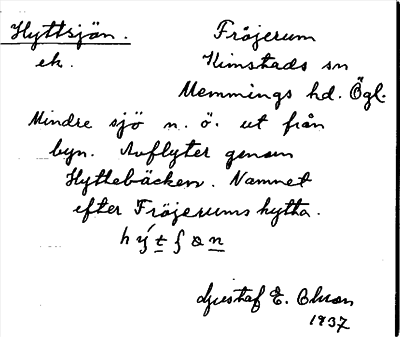 Hyttsjön. Fröjerum
ek. Kimstads sn
Memmings hd. Ögl.
Mindre sjö n. ö. ut från
byn. Avflyter genom
Hyttebäcken. Namnet
efter Fröjerums hytta.
Gustaf E. Olson
1937